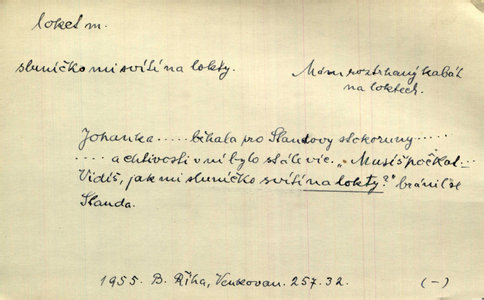 loket m.
sluníčko mi svítí na lokty.
Mám roztrhaný kabát
na loktech.
Johanka ..... běhala pro Standovy stokoruny .....
..... a chtivosti v ní bylo stále víc. „Musíš počkat.
Vidíš, jak mi sluníčko svítí na lokty?" bránil se
Standa.
1955. B. Říha, Venkovan. 257.32. (-)